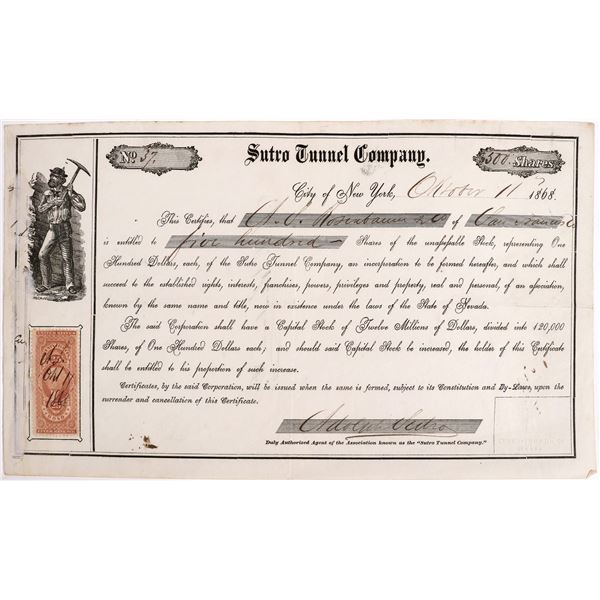 No 57.
500 Shares
Sutro Tunnel Company.
City of New York, Oktober 11th 1868.
This Certifies, that A. S. Rosenbaum & Co of San Francisco
is entitled to five hundred Shares of the unassessable Stock, representing One
Hundred Dollars, each, of the Sutro Tunnel Company, an incorporation to be formed hereafter, and which shall
succeed to the established rights, interests, franchises, powers, privileges and property, real and personal, of an association,
known by the same name and title, now in existence under the laws of the State of Nevada.
The said Corporation shall have a Capital Stock of Twelve Millions of Dollars, divided into 120,000
Shares, of One Hundred Dollars each; and should said Capital Stock be increased, the holder of this Certificate
shall be entitled to his proportion of such increase.
Certificates, by the said Corporation, will be issued when the same is formed, subject to its Constitution and By-Laws, upon the
surrender and cancellation of this Certificate.
Adolph Sutro
Duly Authorized Agent of the Association known as the "Sutro Tunnel Company."
Oct 11